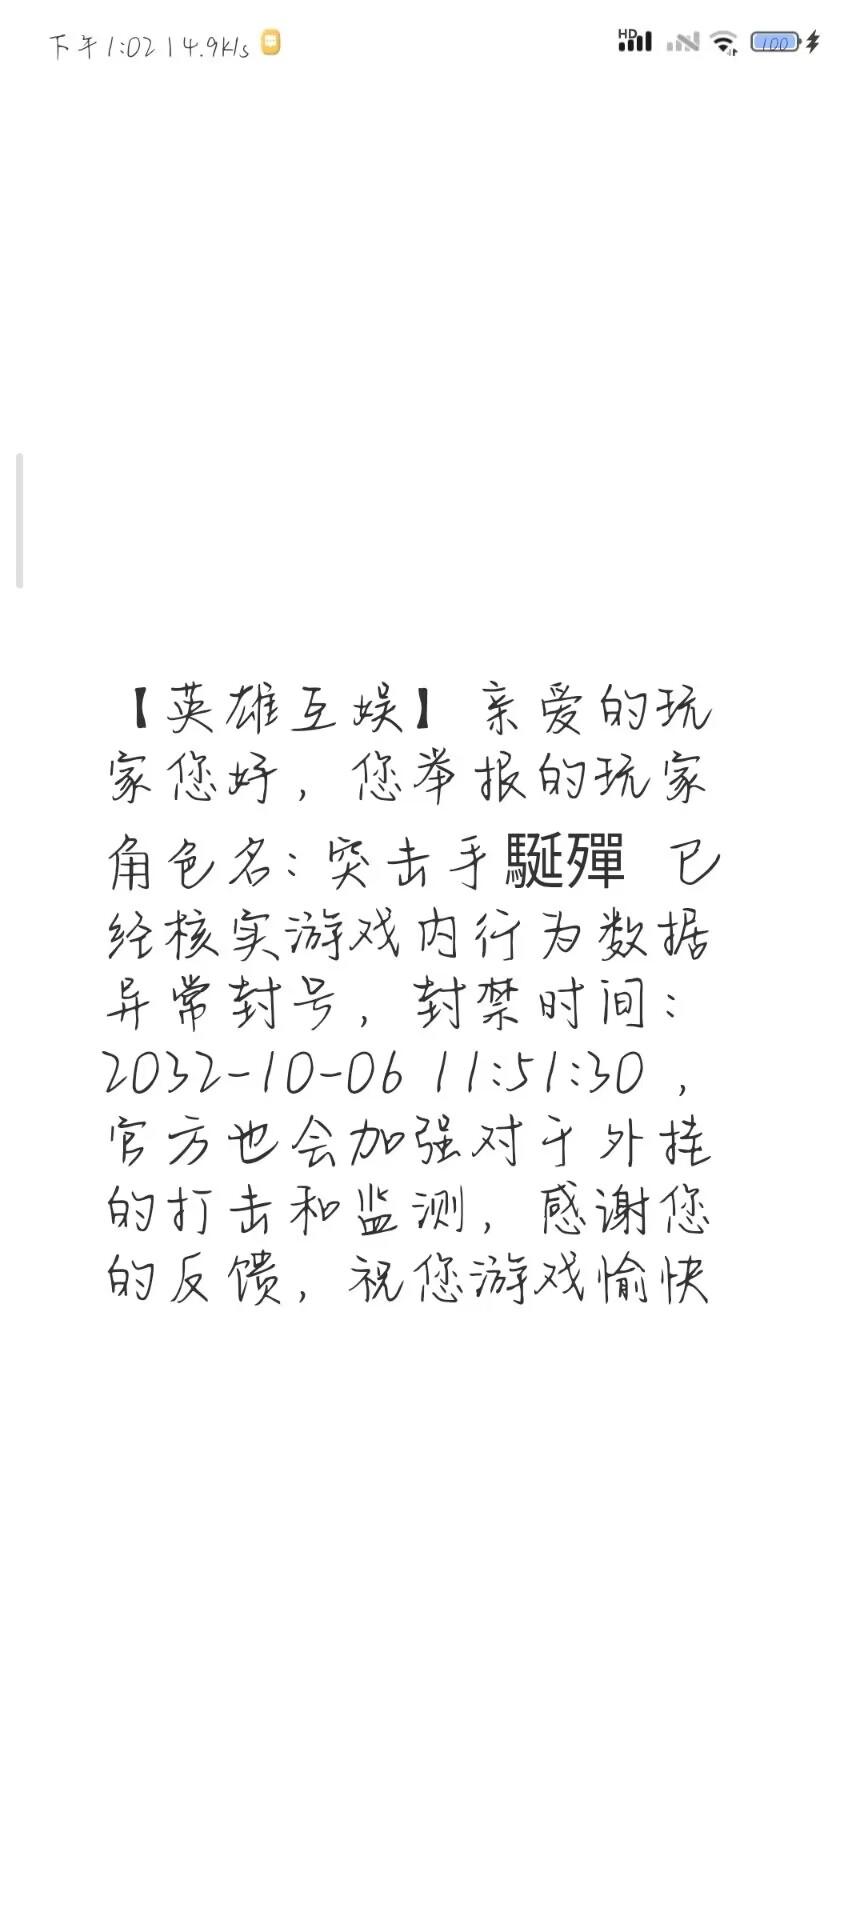 下午1:02 | 4.9K/s
HD
100
【英雄互娱】亲爱的玩
家您好，您举报的玩家
角色名：突击手駳殫 已
经核实游戏内行为数据
异常封号，封禁时间：
2032-10-06 11:51:30，
官方也会加强对于外挂
的打击和监测，感谢您
的反馈，祝您游戏愉快